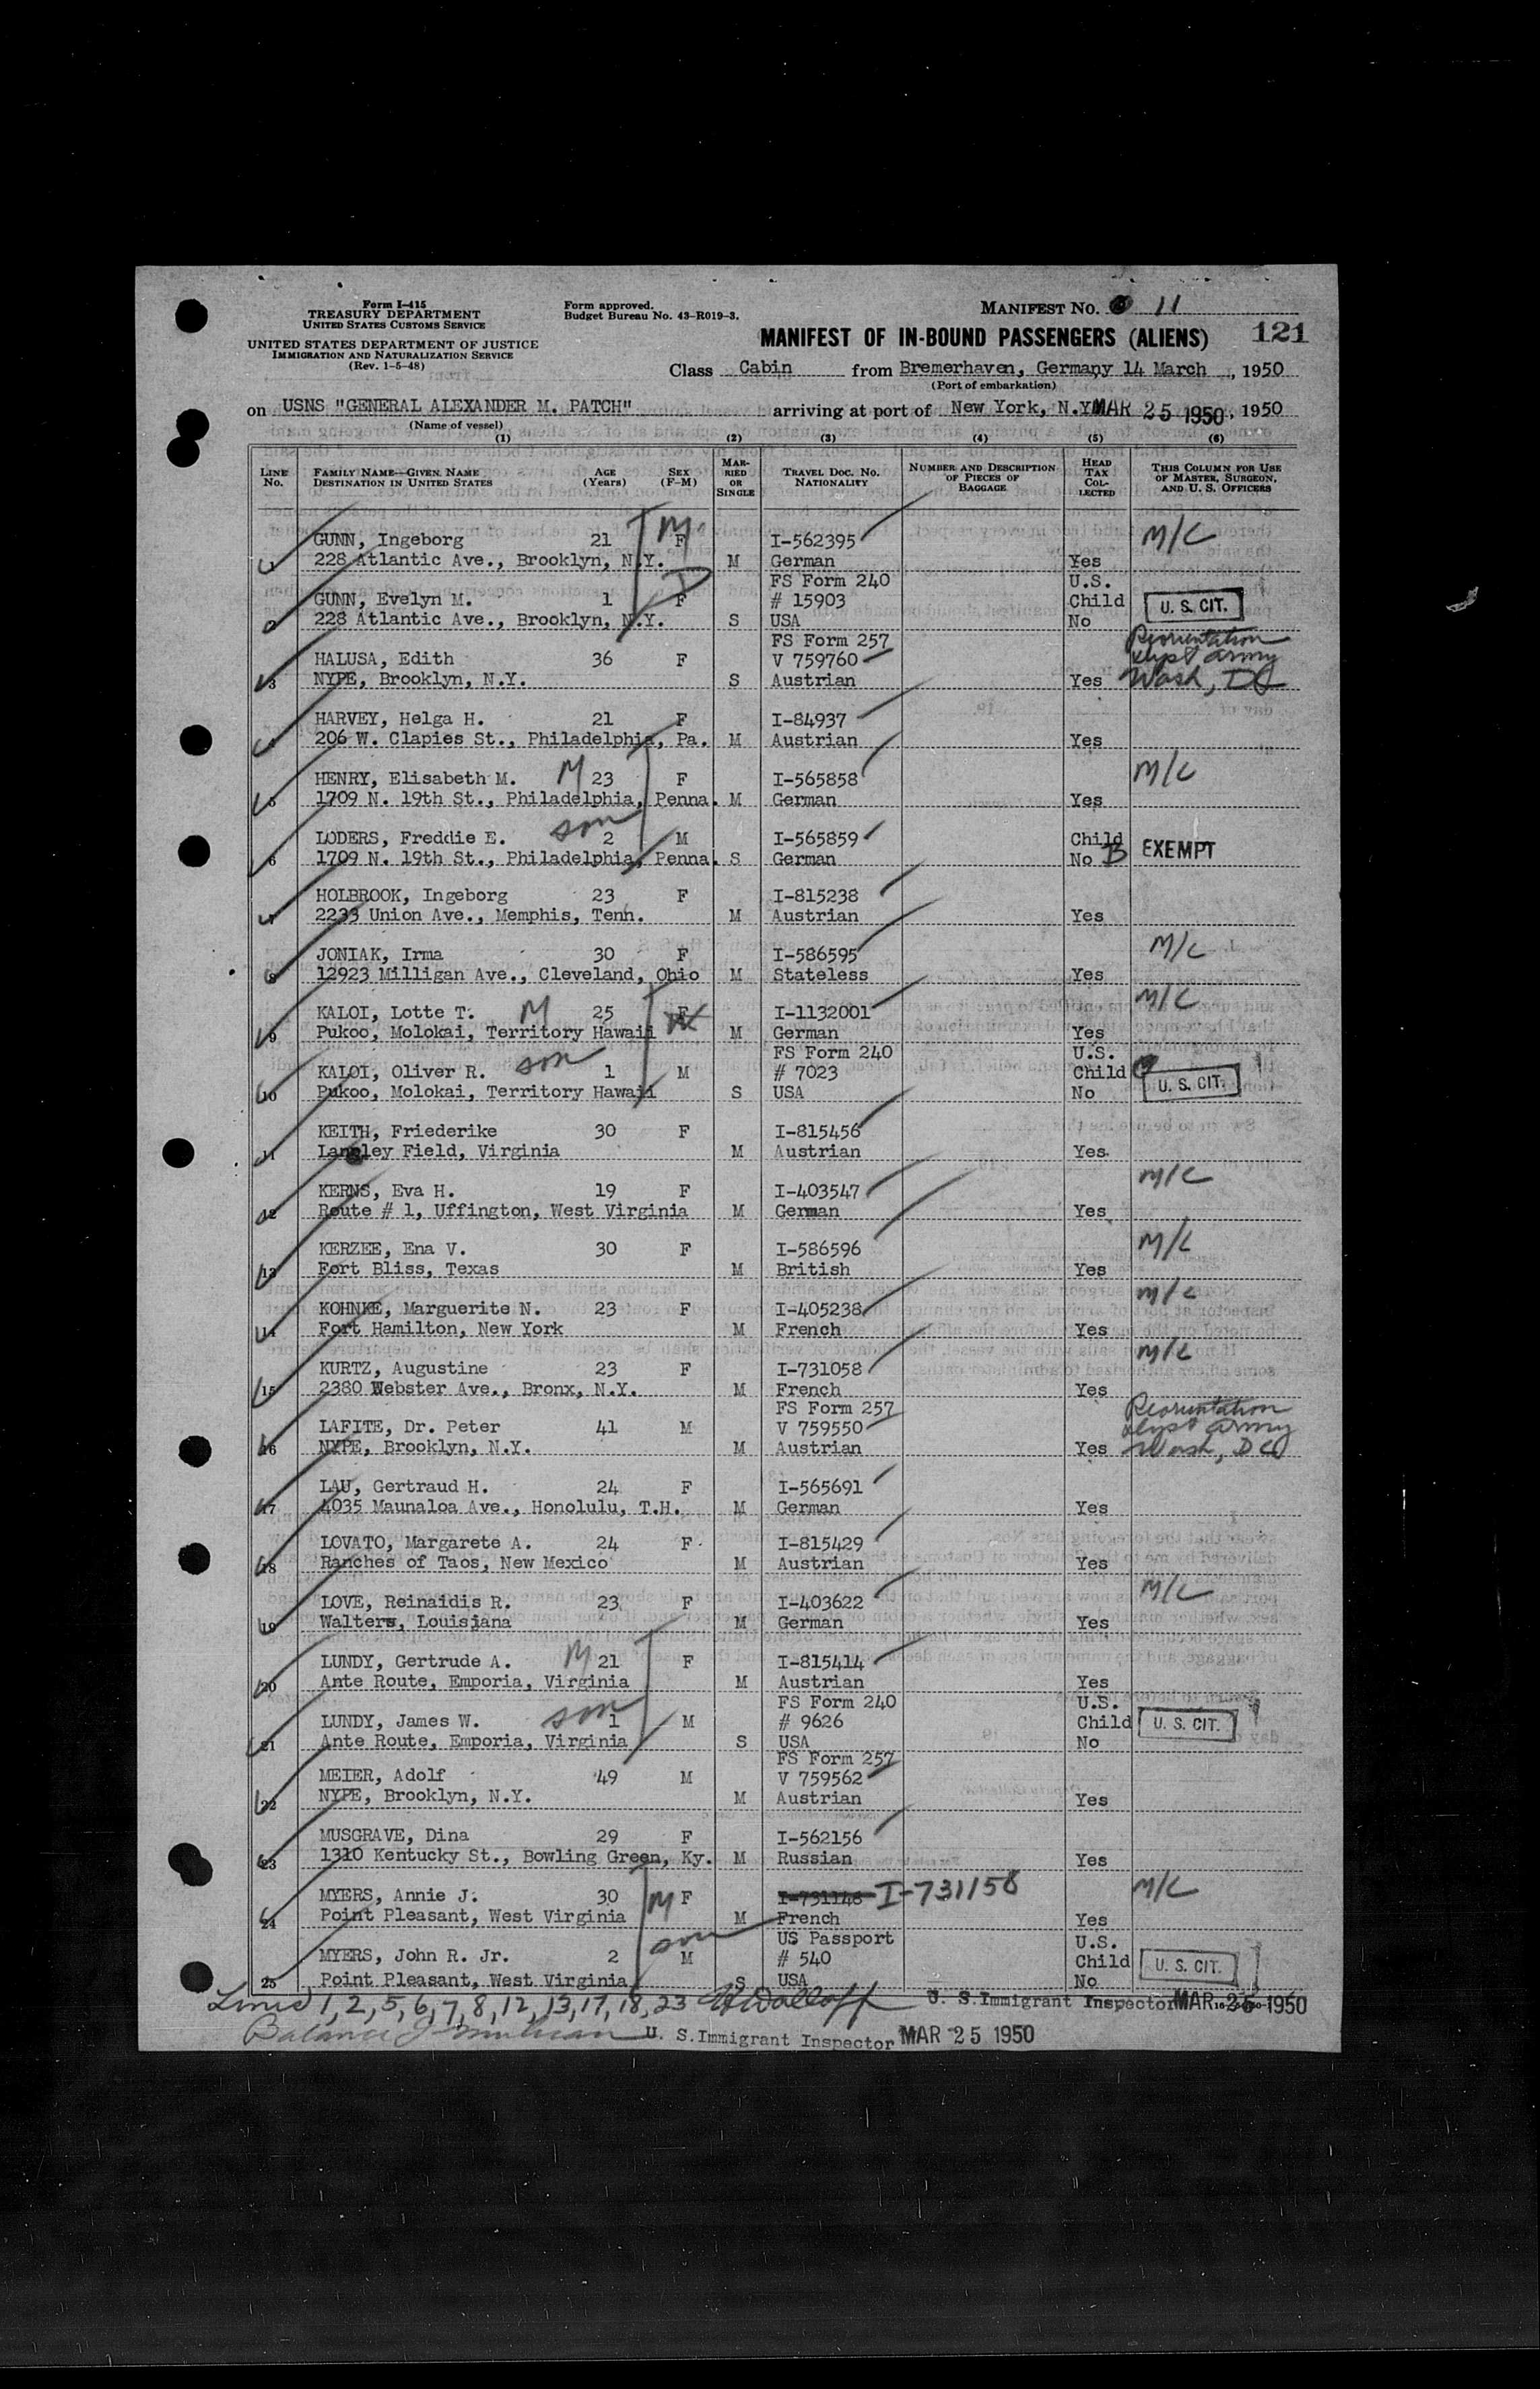 Form I-415
TREASURY DEPARTMENT
UNITED STATES CUSTOMS SERVICE
UNITED STATES DEPARTMENT OF JUSTICE
IMMIGRATION AND NATURALIZATION SERVICE
(Rev. 1-5-48)
Form approved.
Budget Bureau No. 43-R019-3.
MANIFEST NO. 11
MANIFEST OF IN-BOUND PASSENGERS (ALIENS) 121
Class Cabin from Bremerhaven, Germany 14 March, 1950
(Port of embarkation)
on USNS "GENERAL ALEXANDER M. PATCH" arriving at port of New York, N.Y. MAR 25 1950, 1950
(Name of vessel)
(1) (2) (3) (4) (5) (6)
LINE NO. FAMILY NAME—GIVEN NAME DESTINATION IN UNITED STATES AGE (Years) SEX (F-M) MARRIED OR SINGLE TRAVEL DOC. NO. NATIONALITY NUMBER AND DESCRIPTION OF PIECES OF BAGGAGE HEAD TAX COLLECTED THIS COLUMN FOR USE OF MASTER, SURGEON, AND U. S. OFFICERS
GUNN, Ingeborg 21 M F I-562395 M/C
1 228 Atlantic Ave., Brooklyn, N.Y. M German Yes
D FS Form 240 U.S.
GUNN, Evelyn M. 1 F # 15903 Child U. S. CIT.
2 228 Atlantic Ave., Brooklyn, N.Y. S USA No
FS Form 257 Reorientation
HALUSA, Edith 36 F V 759760 Dept Army
3 NYPE, Brooklyn, N.Y. S Austrian Yes Wash, DC
HARVEY, Helga H. 21 F I-84937
4 206 W. Clapies St., Philadelphia, Pa. M Austrian Yes
HENRY, Elisabeth M. M 23 F I-565858 M/C
5 1709 N. 19th St., Philadelphia, Penna. M German Yes
LODERS, Freddie E. son 2 M I-565859 Child
6 1709 N. 19th St., Philadelphia, Penna. S German No B EXEMPT
HOLBROOK, Ingeborg 23 F I-815238
7 2233 Union Ave., Memphis, Tenn. M Austrian Yes
JONIAK, Irma 30 F I-586595 M/C
8 12923 Milligan Ave., Cleveland, Ohio M Stateless Yes
KALOI, Lotte T. M 25 F I-1132001 M/C
9 Pukoo, Molokai, Territory Hawaii M German Yes
FS Form 240 U.S.
KALOI, Oliver R. son 1 M # 7023 Child
10 Pukoo, Molokai, Territory Hawaii S USA No U. S. CIT.
KEITH, Friederike 30 F I-815456
11 Langley Field, Virginia M Austrian Yes
KERNS, Eva H. 19 F I-403547 M/C
12 Route # 1, Uffington, West Virginia M German Yes
KERZEE, Ena V. 30 F I-586596 M/C
13 Fort Bliss, Texas M British Yes
KOHNKE, Marguerite N. 23 F I-405238 M/C
14 Fort Hamilton, New York M French Yes
KURTZ, Augustine 23 F I-731058 M/C
15 2380 Webster Ave., Bronx, N.Y. M French Yes
FS Form 257 Reorientation
LAFITE, Dr. Peter 41 M V 759550 Dept Army
16 NYPE, Brooklyn, N.Y. M Austrian Yes Wash, DC
LAU, Gertraud H. 24 F I-565691
17 4035 Maunaloa Ave., Honolulu, T.H. M German Yes
LOVATO, Margarete A. 24 F I-815429
18 Ranches of Taos, New Mexico M Austrian Yes
LOVE, Reinaidis R. 23 F I-403622 M/C
19 Walters, Louisiana M German Yes
LUNDY, Gertrude A. M 21 F I-815414
20 Ante Route, Emporia, Virginia M Austrian Yes
FS Form 240 U.S.
LUNDY, James W. son 1 M # 9626 Child U. S. CIT.
21 Ante Route, Emporia, Virginia S USA No
FS Form 257
MEIER, Adolf 49 M V 759562
22 NYPE, Brooklyn, N.Y. M Austrian Yes
MUSGRAVE, Dina 29 F I-562156
23 1310 Kentucky St., Bowling Green, Ky. M Russian Yes
MYERS, Annie J. 30 M F I-731148 I-731158 M/C
24 Point Pleasant, West Virginia M French Yes
son US Passport U.S.
MYERS, John R. Jr. 2 M # 540 Child U. S. CIT.
25 Point Pleasant, West Virginia S USA No
Lines 1, 2, 5, 6, 7, 8, 12, 13, 17, 18, 23 U. S. Immigrant Inspector MAR 25 1950
Balance U. S. Immigrant Inspector MAR 25 1950